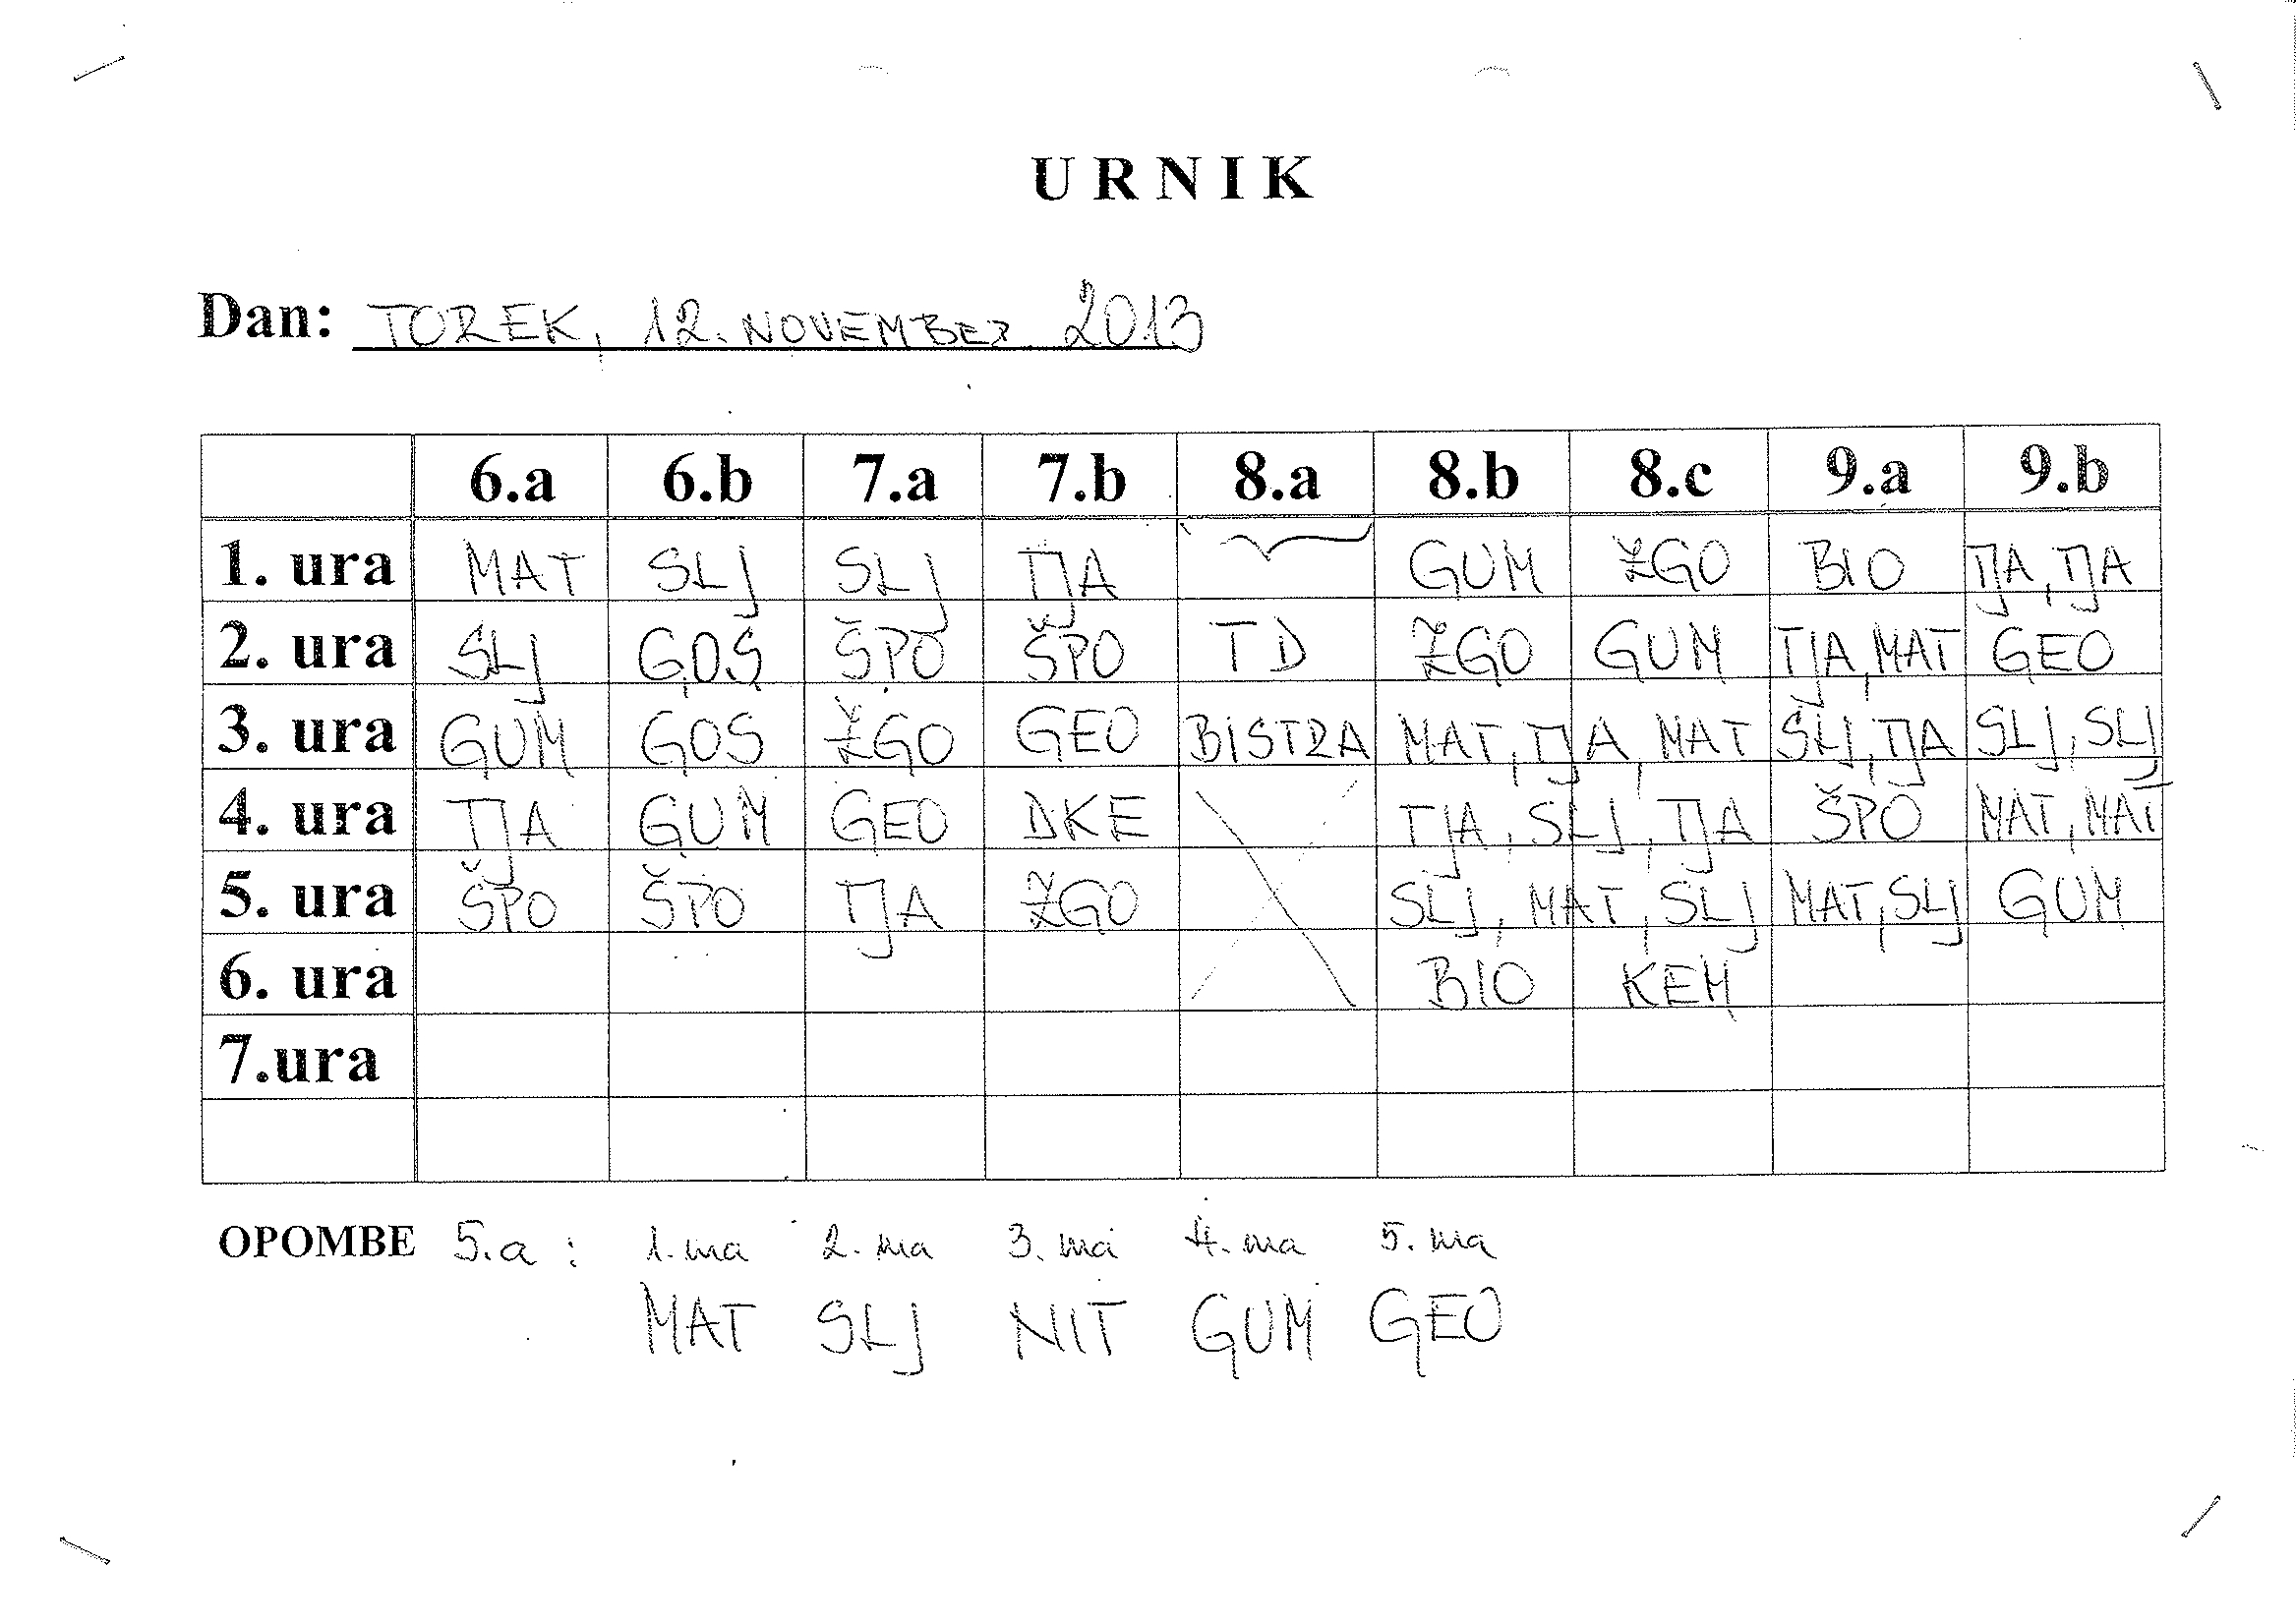 URNIK
Dan: TOREK, 12. NOVEMBER 2013
6.a 6.b 7.a 7.b 8.a 8.b 8.c 9.a 9.b
1. ura MAT SLJ SLJ TJA GUM ŽGO BIO TJA, TJA
2. ura SLJ GOS ŠPO ŠPO TD ŽGO GUM TJA, MAT GEO
3. ura GUM GOS ŽGO GEO BISTRA MAT, TJA, MAT SLJ, TJA SLJ, SLJ
4. ura TJA GUM GEO DKE TJA, SLJ, TJA ŠPO MAT, MAT
5. ura ŠPO ŠPO TJA ŽGO SLJ, MAT, SLJ MAT, SLJ GUM
6. ura BIO KEM
7.ura
OPOMBE 5.a : 1. ura 2. ura 3. ura 4. ura 5. ura
MAT SLJ NIT GUM GEO